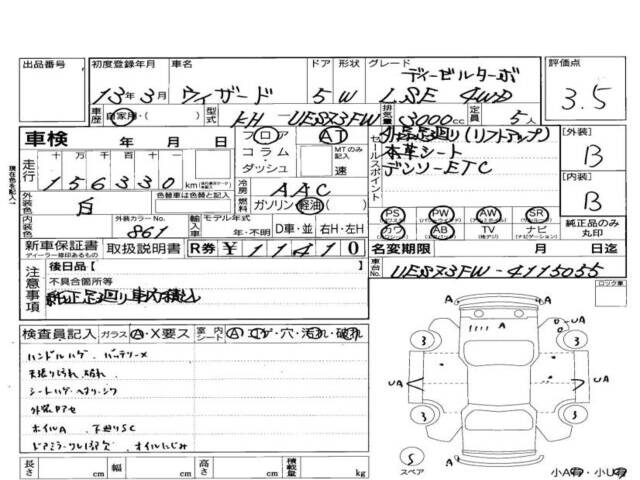 出品番号 初度登録年月 車名 ドア 形状 グレード 評価点
13年3月 ウィザード 5 W ディーゼルターボ LSE 4WD 3.5
車歴 自家用・( ) 型式 KH-UES73FW 排気量 3000cc 定員 5人
車検 年 月 日 フロア AT
コラム MTのみ記入
ダッシュ 速
走行 十万 万 千 百 十 一
156330 km
セールスポイント 外品足廻り(リフトアップ)
本革シート
デンソーETC
[外装] B
[内装] B
外装色 白 色替車は色替と記入
冷房 AAC
燃料 ガソリン 軽油( )
内装色 外装カラーNo. 861 輸入車 モデル年式 年・不明 D車・並 右H・左H
PS PW AW SR
カワ AB TV ナビ
純正品のみ丸印
新車保証書 取扱説明書 R券 ¥11410
ディーラー捺印あるもの
名変期限 月 日迄
車台No. UES73FW-4115055
ロック車
現在色名を記入
注意事項 後日品( )
不具合箇所等
純正足廻り車内積込
検査員記入 ガラス A・X要ス 室内シート A コゲ・穴・汚れ・破れ
ハンドルハゲ バッテリーメ
天張り汚れ、破れ
シートハゲ ヘタリ シワ
外装色アセ
ホイルA 下廻りSC
ドアミラー オイルにじみ
長さ cm 幅 cm 高さ cm 積載量 kg
A A UA
3 3
UA UA
3 3
A
S A
スペア 小A有・小U有